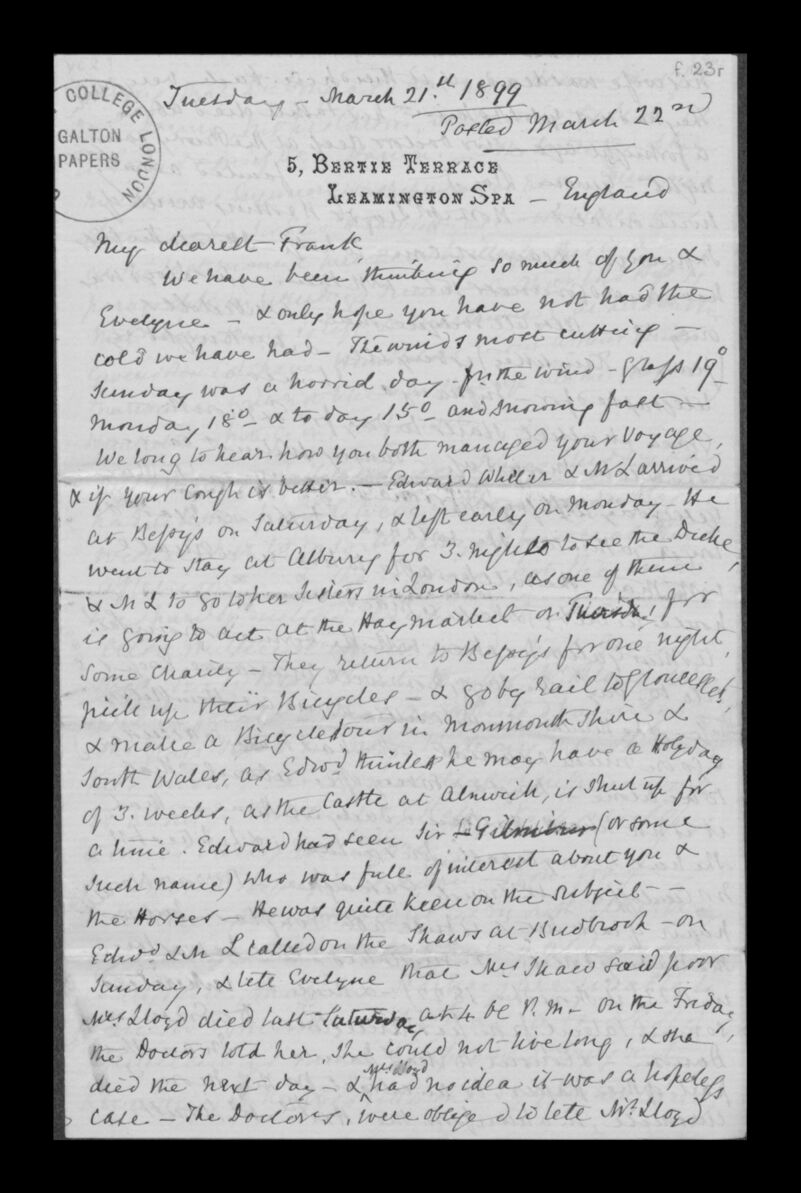 f. 23r
COLLEGE LONDON
GALTON
PAPERS
Tuesday - March 21.st 1899
Posted March 22nd
5, BERTIE TERRACE
LEAMINGTON SPA - England
My dearest Frank
We have been thinking so much of you &
Evelyne - & only hope you have not had the
cold we have had - The wind's most cutting -
Sunday was a horrid day for the wind - glass 19°
Monday 18° - & to day 15° - and snowing fast -
We long to hear how you both managed your Voyage,
& if your Cough is better. - Edward Wheler & M L arrived
at Bessy's on Saturday, & left early on Monday - He
went to stay at Albury for 3. nights to see the Duke,
& M L to go to her Sisters in London, as one of them
is going to act at the Haymarket on Tuesday, for
some Charity - They return to Bessy's for one night,
pick up their Bicycles - & go by rail to Gloucester,
& make a Bicycle tour in Monmouth Shire &
South Wales, as Edwd thinks he may have a Holyday
of 3. weeks, as the Castle at Alnwick, is shut up for
a time. Edward had seen Sir (or some
such name) who was full of interest about you &
the Horses - He was quite keen on the Subject -
Edwd & M L called on the Shaws at Budbrook - on
Sunday, & tete Evelyne that Mrs Shaw said poor
Mrs Lloyd died last Saturday at 4 P.M. - on the Friday,
the Doctors told her, she could not live long, & she
died the next day - & Mrs Lloyd had no idea it was a hopeless
case - The Doctors, were obliged to tete Mr. Lloyd